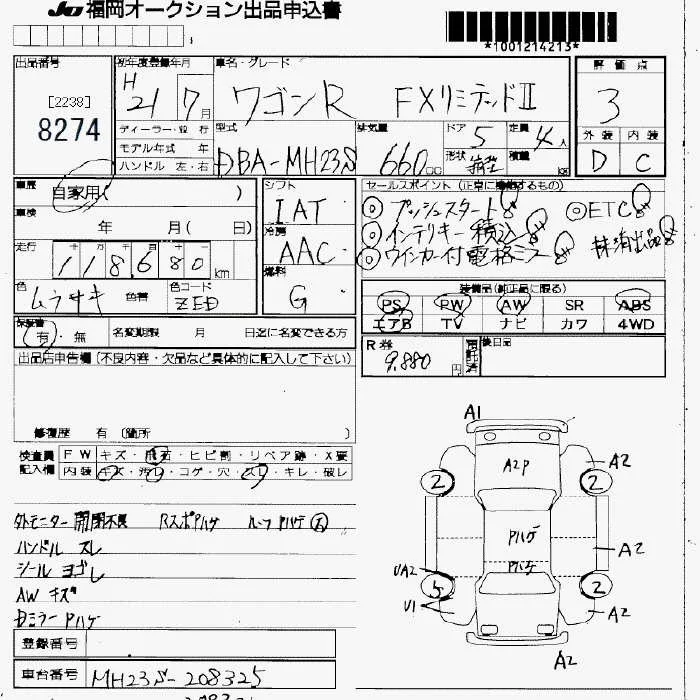 JU 福岡オークション出品申込書
*1001214213*
出品番号
[2238]
8274
初年度登録年月
H 21 7月
車名・グレード
ワゴンR FXリミテッドⅡ
評価点
3
外装 内装
D C
ディーラー・並行
モデル年式 年
ハンドル 左・右
型式
DBA-MH23S
排気量
660 cc
ドア 5
形状
定員 4人
積載 kg
車歴
自家用( )
車検
年 月( 日)
走行
118,680 km
色
ムラサキ 色替
色コード
ZED
シフト
IAT
冷房
AAC
燃料
G
セールスポイント (正常に機能するもの)
◎プッシュスタート
◎ETC
◎インテリキー積込
◎ウインカー付電格ミラー
抹消出品
装備品(純正品に限る)
PS PW AW SR ABS
エアB TV ナビ カワ 4WD
保証書
有・無
名変期限 月 日迄に名変できる方
R券
9,880円
後日品
出品店申告欄 (不良内容・欠品など具体的に記入して下さい)
修復歴 有 (箇所 )
検査員
記入欄
FW キズ・飛石・ヒビ割・リペア跡・X要
内装 キズ・汚れ・コゲ・穴・スレ・キレ・破レ
外モニター開閉不良 RスポPハゲ ルーフPハゲ
ハンドル スレ
シール ヨゴレ
AW キズ
Dミラー Pハゲ
登録番号
車台番号
MH23S-208325
A1
A2P
A2
2
2
Pハゲ
Pハゲ
A2
UA2
5
2
U1
A2
A2